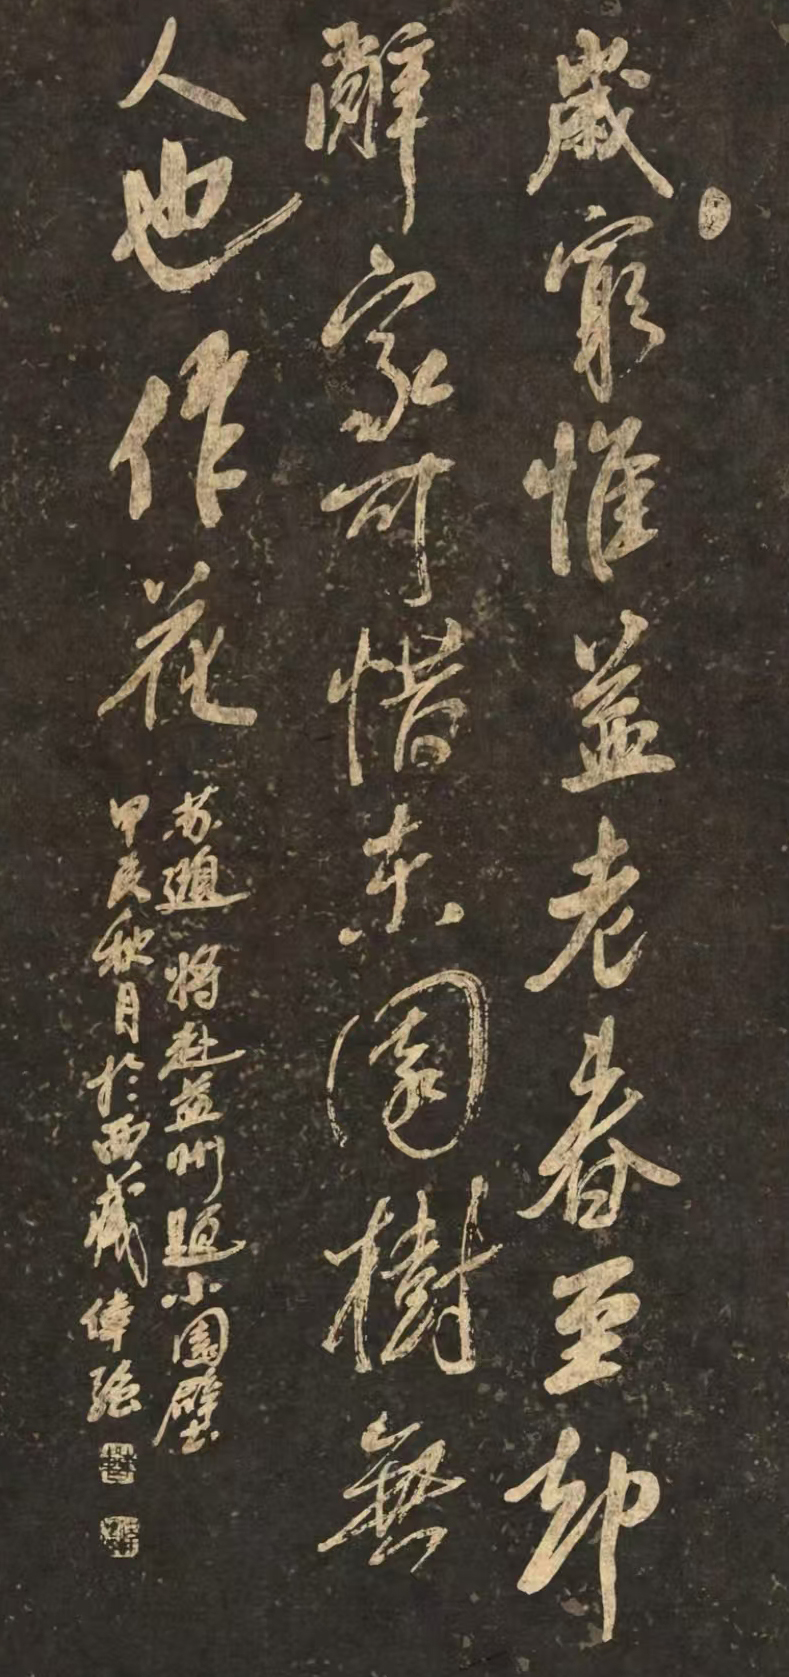 歲窮惟益老春至却
辭家可惜东園樹無
人也作花
苏頲 将赴益州題小園壁
甲辰秋月於西藏偉强